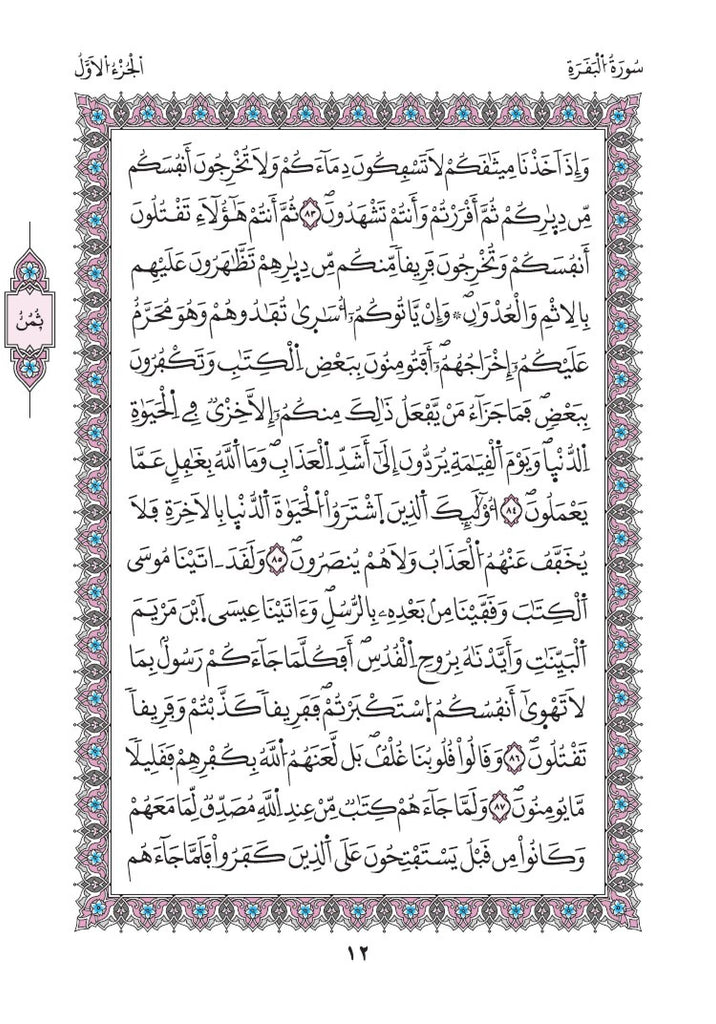 سُورَةُ الْبَقَرَةِ
الْجُزْءُ الَاوَّلُ
وَإِذَ اَخَذْنَا مِيثَٰقَكُمْ لَا تَسْفِكُونَ دِمَآءَكُمْ وَلَا تُخْرِجُونَ أَنفُسَكُم
مِّن دِيٰ۪رِكُمْ ثُمَّ أَقْرَرْتُمْ وَأَنتُمْ تَشْهَدُونَۖ ٨٣ ثُمَّ أَنتُمْ هَٰٓؤُلَآءِ تَقْتُلُونَ
أَنفُسَكُمْ وَتُخْرِجُونَ فَرِيقاٗ مِّنكُم مِّن دِيٰ۪رِهِمْ تَظَّٰهَرُونَ عَلَيْهِم
بِالِاثْمِ وَالْعُدْوَٰنِۖ ۞ وَإِنْ يَّاتُوكُمُۥٓ أُسَٰر۪ىٰ تُفَٰدُوهُمْ وَهُوَ مُحَرَّمٌ
عَلَيْكُمُۥٓ إِخْرَاجُهُمُۥٓۖ أَفَتُومِنُونَ بِبَعْضِ اِ۬لْكِتَٰبِ وَتَكْفُرُونَ
بِبَعْضٖۖ فَمَا جَزَآءُ مَنْ يَّفْعَلُ ذَٰلِكَ مِنكُمُۥٓ إِلَّا خِزْيٞ فِے اِ۬لْحَيَوٰةِ
اِ۬لدُّنْي۪اۖ وَيَوْمَ اَ۬لْقِيَٰمَةِ يُرَدُّونَ إِلَىٰٓ أَشَدِّ اِ۬لْعَذَابِۖ وَمَا اَ۬للَّهُ بِغَٰفِلٍ عَمَّا
يَعْمَلُونَۖ ٨٤ أُوْلَٰٓئِكَ اَ۬لذِينَ اَ۪شْتَرَوُاْ اُ۬لْحَيَوٰةَ اَ۬لدُّنْي۪ا بِالَاخِرَةِ فَلَا
يُخَفَّفُ عَنْهُمُ اُ۬لْعَذَابُ وَلَا هُمْ يُنصَرُونَۖ ٨٥ وَلَقَدَ اٰتَيْنَا مُوسَى
اَ۬لْكِتَٰبَ وَقَفَّيْنَا مِنۢ بَعْدِهِۦ بِالرُّسُلِۖ وَءَاتَيْنَا عِيسَى اَ۪بْنَ مَرْيَمَ
اَ۬لْبَيِّنَٰتِ وَأَيَّدْنَٰهُ بِرُوحِ اِ۬لْقُدُسِۖ أَفَكُلَّمَا جَآءَكُمْ رَسُولُۢ بِمَا
لَا تَهْو۪ىٰٓ أَنفُسُكُمُ اُ۪سْتَكْبَرْتُمْۖ فَفَرِيقاٗ كَذَّبْتُمْ وَفَرِيقاٗ
تَقْتُلُونَۖ ٨٦ وَقَالُواْ قُلُوبُنَا غُلْفُۢۖ بَل لَّعَنَهُمُ اُ۬للَّهُ بِكُفْرِهِمْ فَقَلِيلاٗ
مَّا يُومِنُونَۖ ٨٧ وَلَمَّا جَآءَهُمْ كِتَٰبٞ مِّنْ عِندِ اِ۬للَّهِ مُصَدِّقٞ لِّمَا مَعَهُمْ
وَكَانُواْ مِن قَبْلُ يَسْتَفْتِحُونَ عَلَى اَ۬لذِينَ كَفَرُواْ فَلَمَّا جَآءَهُم
ثُمُنُ
١٢